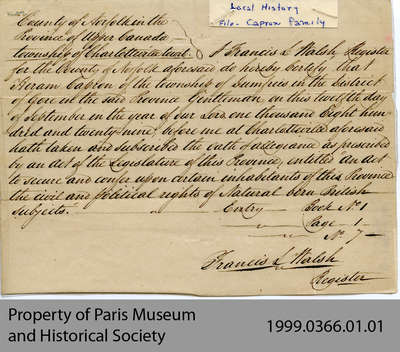 Local History
File - Capron Family
County of Norfolk in the
Province of Upper Canada
township of Charlotteville to wit: I Francis L Walsh, Register
for the County of Norfolk aforesaid do hereby certify that
Hiram Capron of the township of Dumfries in the District
of Gore in the said Province Gentleman on this twelfth day
of September in the year of our Lord one thousand Eight hun
drd and twenty nine, before me at Charlotteville aforesaid
hath taken and subscribed the oath of allegiance as prescribed
by an act of the Legislature of this Province, entitled an act
to secure and confer upon certain inhabitants of this Province
the civil and political rights of Natural born British
subjects. Entry Book No 1
Page 1
No 7
Francis L Walsh
Register
Property of Paris Museum
and Historical Society
1999.0366.01.01